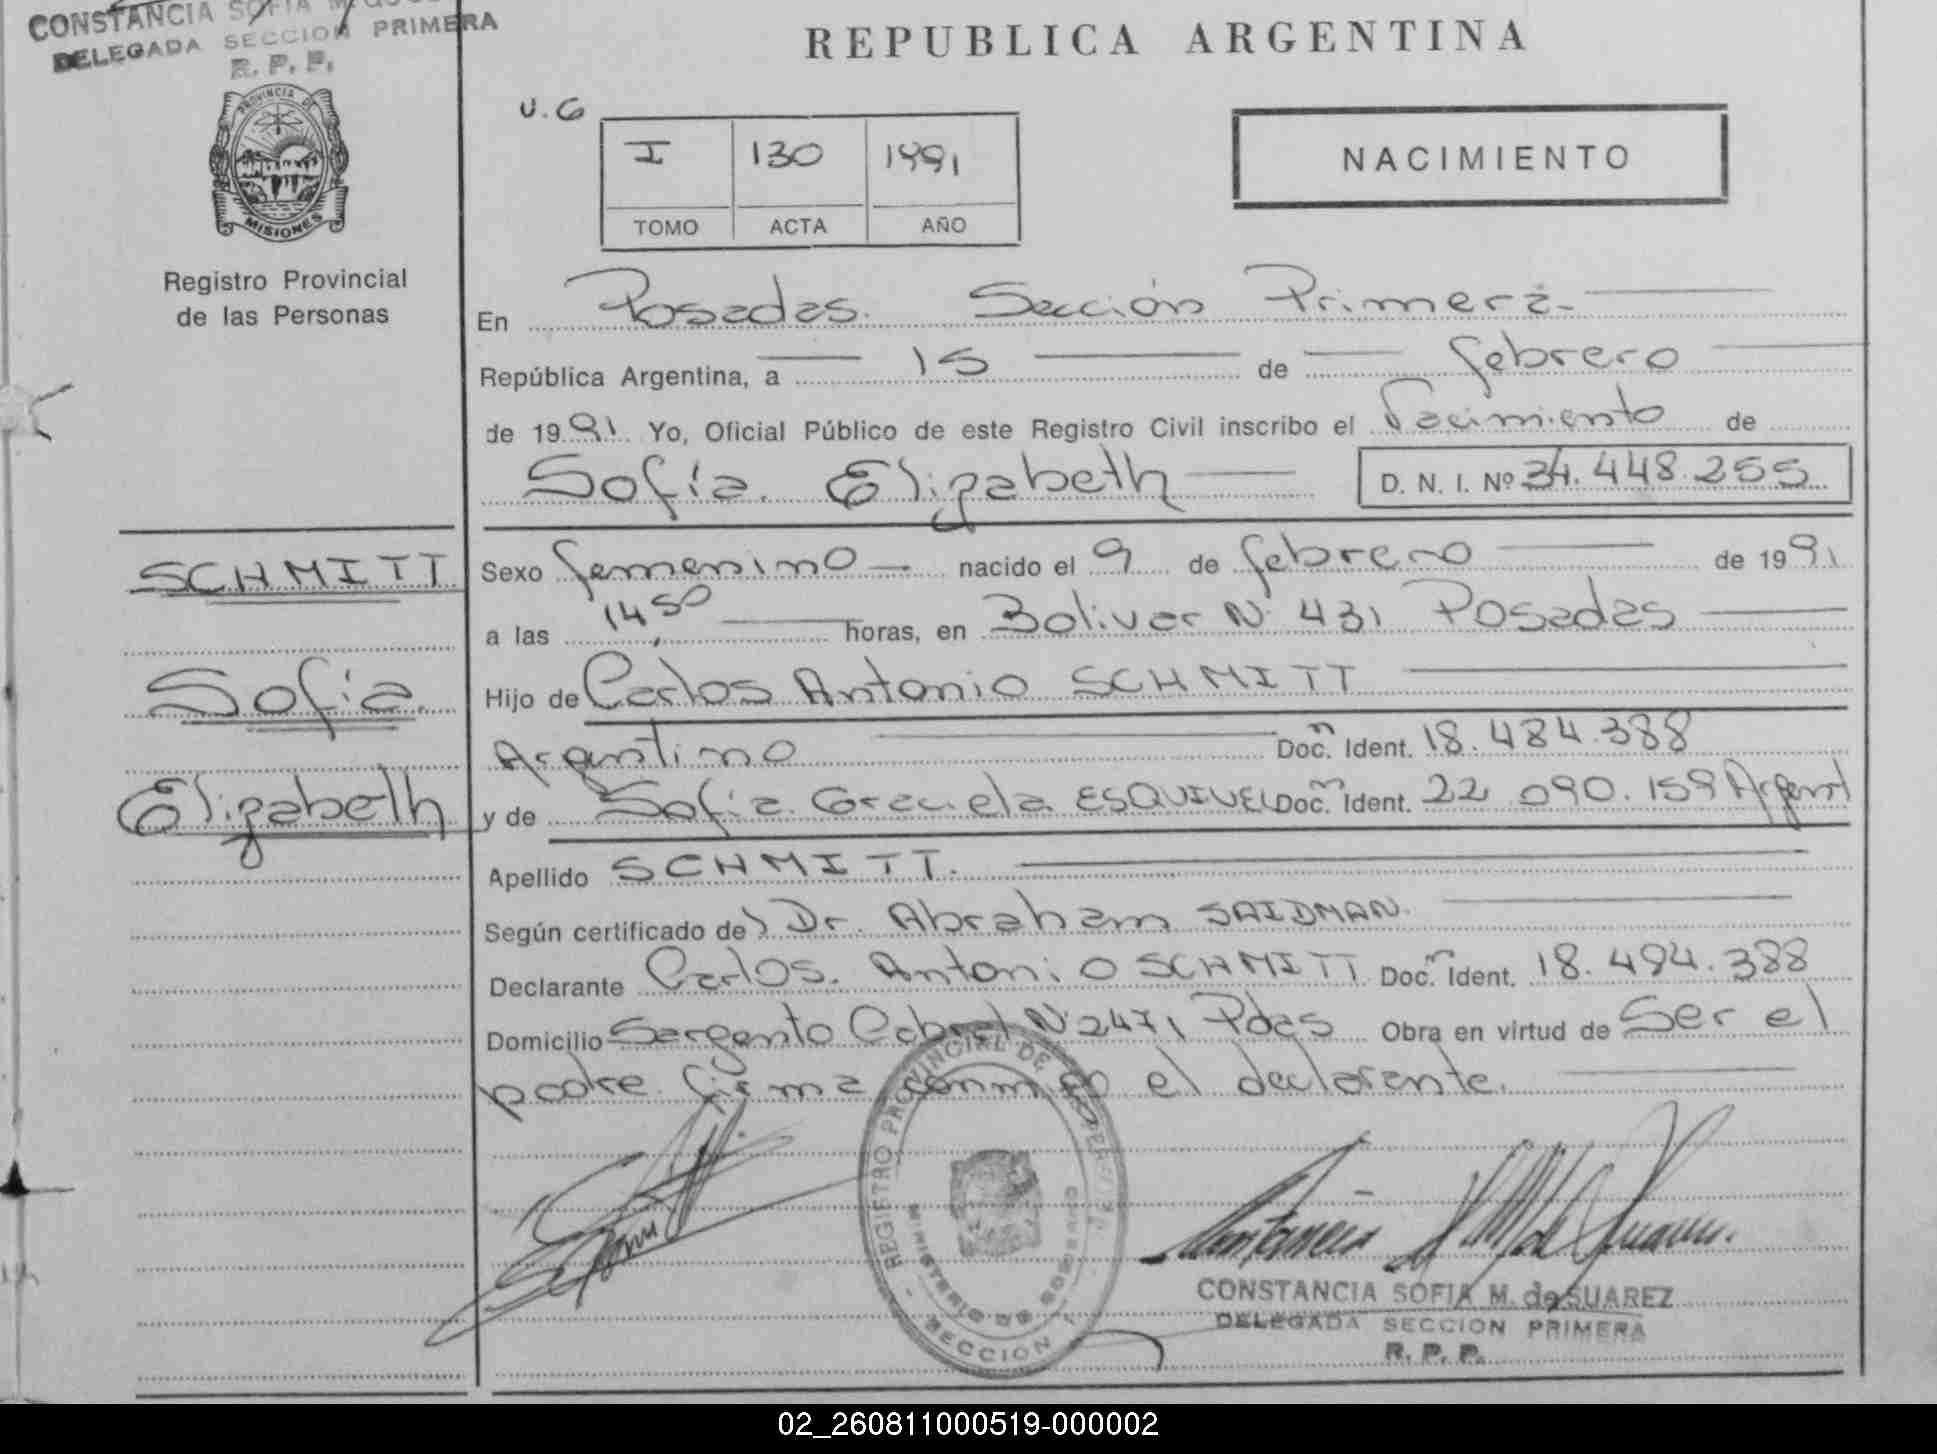 CONSTANCIA SOFIA M.
DELEGADA SECCION PRIMERA
R. P. P.
PROVINCIA DE
MISIONES
Registro Provincial
de las Personas
REPUBLICA ARGENTINA
U.G
I 130 1991
TOMO ACTA AÑO
NACIMIENTO
En Posadas. Sección Primera-
República Argentina, a 15 de febrero
de 1991. Yo, Oficial Público de este Registro Civil inscribo el Nacimiento de
Sofía Elizabeth
D. N. I. Nº 34.448.255
SCHMITT
Sofía
Elizabeth
Sexo femenino nacido el 9 de febrero de 1991
a las 14,50 horas, en Bolivar Nº 431 Posadas
Hijo de Carlos Antonio SCHMITT
Argentino Docn. Ident. 18.484.388
y de Sofía Graciela ESQUIVEL Docn. Ident. 22.090.159 Argent
Apellido SCHMITT.
Según certificado del Dr. Abraham SAIDMAN.
Declarante Carlos. Antonio SCHMITT Docn. Ident. 18.494.388
Domicilio Sargento Cabral Nº 2471 Pdas Obra en virtud de Ser el
padre. firma conmigo el declarante.
REGISTRO PROVINCIAL DE LAS PERSONAS
MINISTERIO DE GOBIERNO
SECCION 1
CONSTANCIA SOFIA M. de SUAREZ
DELEGADA SECCION PRIMERA
R. P. P.
02_260811000519-000002